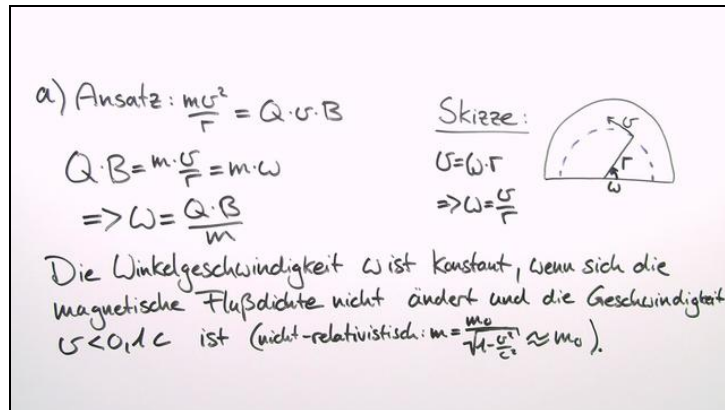 a) Ansatz: mv²/r = Q·v·B
Q·B = m·v/r = m·ω
=> ω = Q·B/m
Skizze:
v = ω·r
=> ω = v/r
v
r
ω
Die Winkelgeschwindigkeit ω ist konstant, wenn sich die
magnetische Flußdichte nicht ändert und die Geschwindigkeit
v < 0,1c ist (nicht-relativistisch: m = m₀/√(1-v²/c²) ≈ m₀).